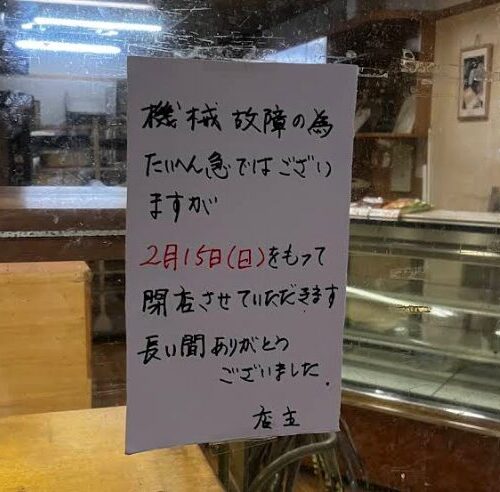 機械故障の為
たいへん急ではござい
ますが
2月15日(日)をもって
閉店させていただきます
長い間ありがとう
ございました.
店主